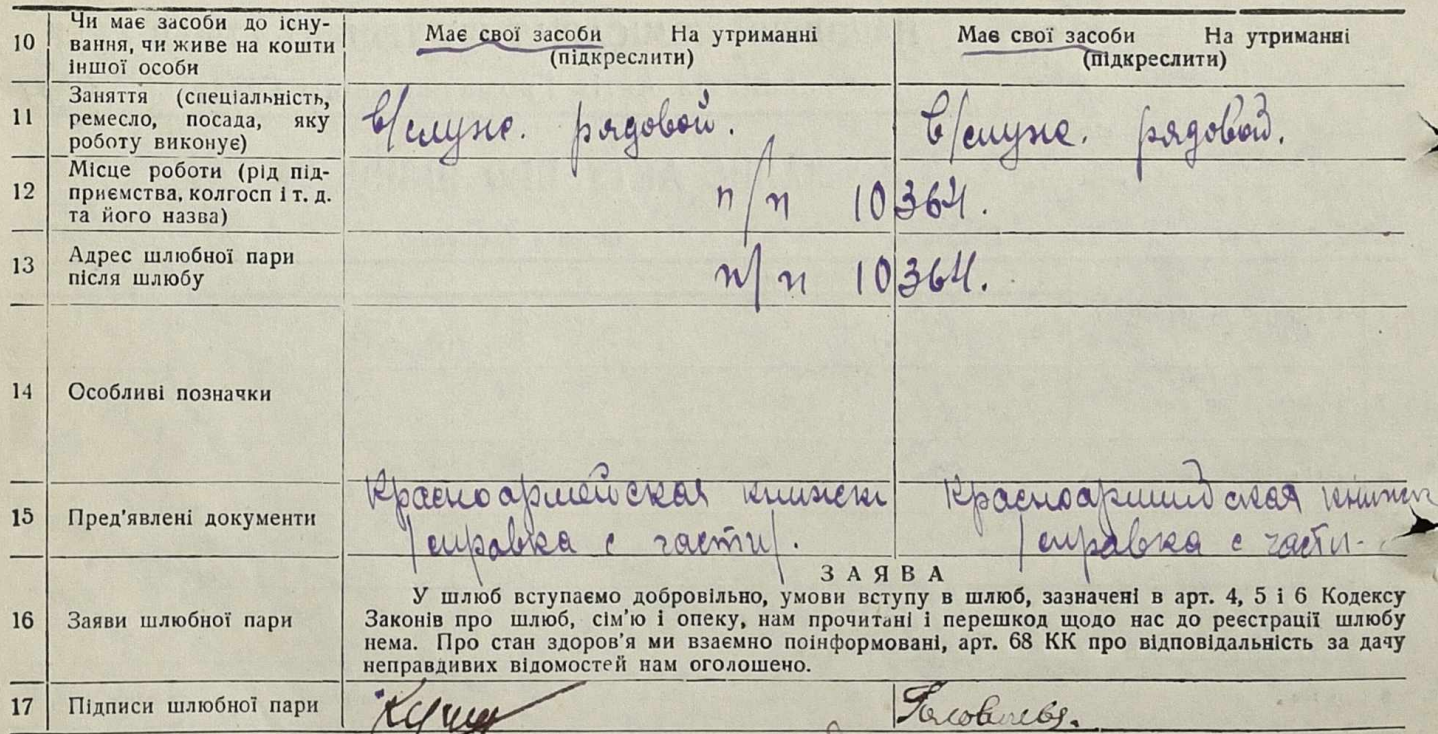 10 Чи має засоби до існу-
вання, чи живе на кошти
іншої особи
Має свої засоби На утриманні
(підкреслити)
Має свої засоби На утриманні
(підкреслити)
11 Заняття (спеціальність,
ремесло, посада, яку
роботу виконує)
в/служ. рядовой.
в/служ. рядовой.
12 Місце роботи (рід під-
приємства, колгосп і т. д.
та його назва)
п/п 10364.
13 Адрес шлюбної пари
після шлюбу
п/п 10364.
14 Особливі позначки
15 Пред'явлені документи
Красноармейская книжка
/справка с части/.
Красноармейская книжка
/справка с части.
ЗАЯВА
16 Заяви шлюбної пари
У шлюб вступаємо добровільно, умови вступу в шлюб, зазначені в арт. 4, 5 і 6 Кодексу
Законів про шлюб, сім'ю і опеку, нам прочитані і перешкод щодо нас до реєстрації шлюбу
нема. Про стан здоров'я ми взаємно поінформовані, арт. 68 КК про відповідальність за дачу
неправдивих відомостей нам оголошено.
17 Підписи шлюбної пари